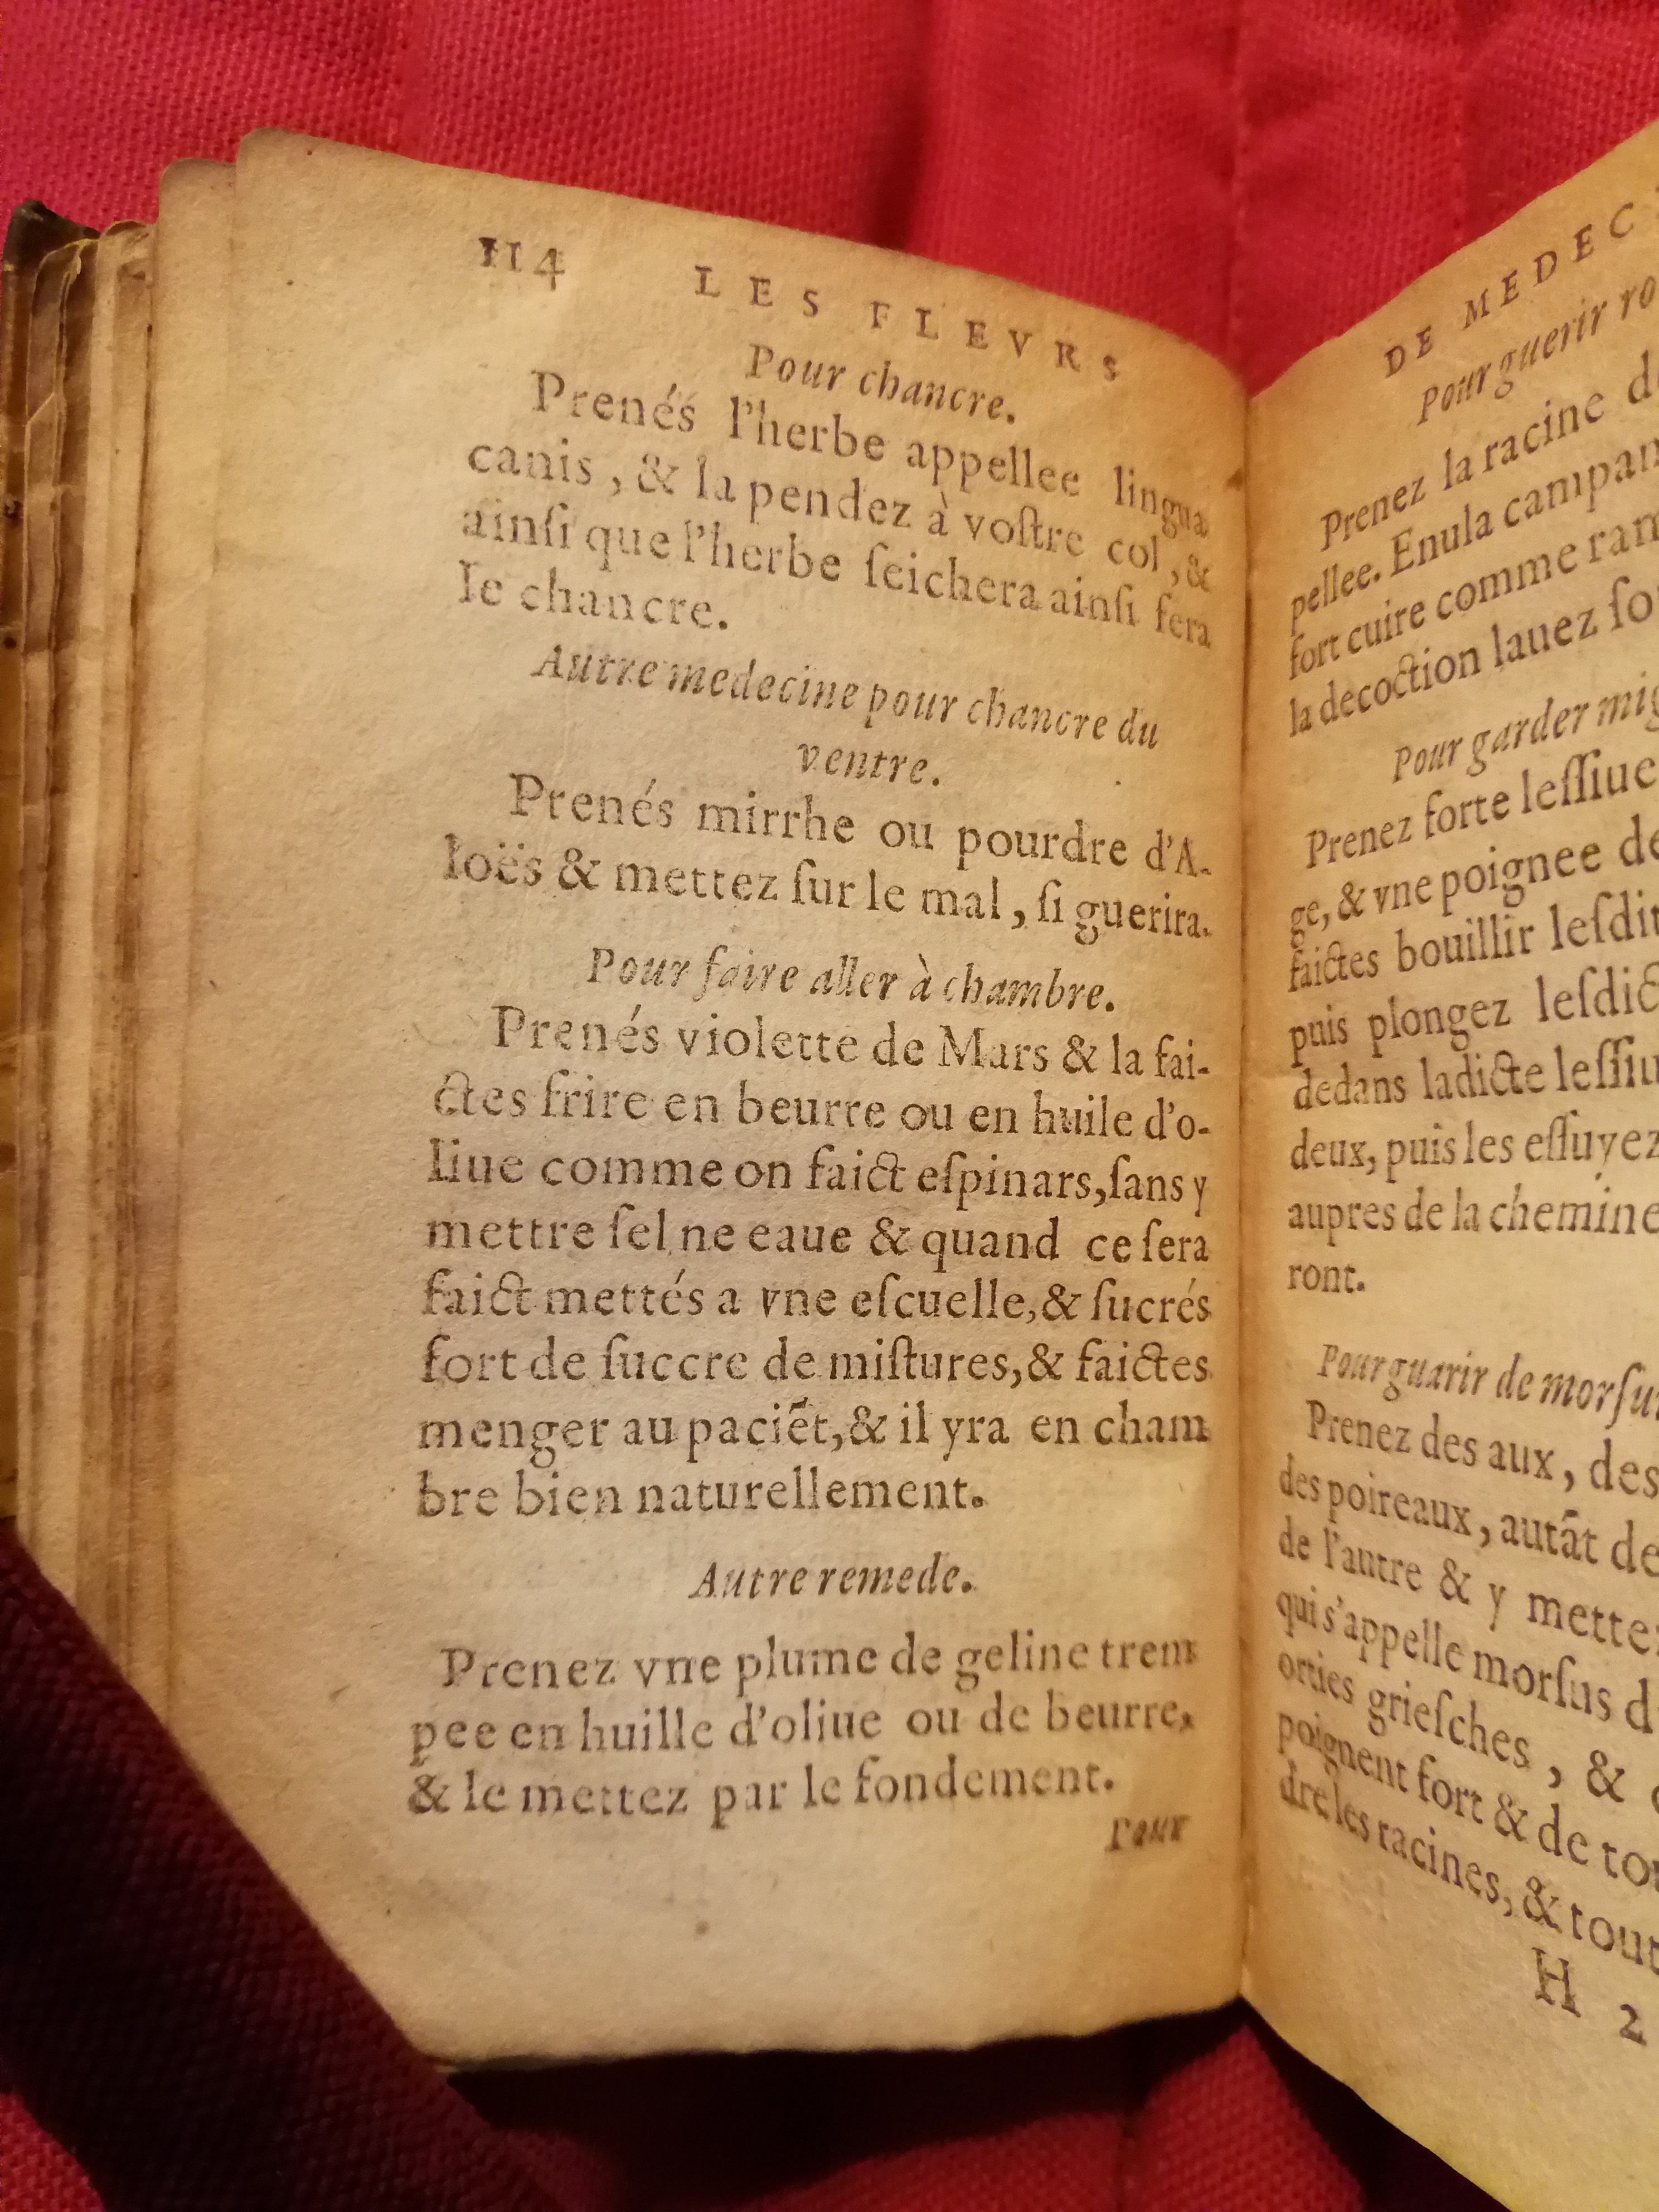 114 LES FLEVRS
Pour chancre.
Prenés l'herbe appellee lingua
canis, & la pendez à voſtre col, &
ainſi que l'herbe ſeichera ainſi ſera
le chancre.
Autre medecine pour chancre du
ventre.
Prenés mirrhe ou pourdre d'A-
loës & mettez ſur le mal, ſi guerira.
Pour faire aller à chambre.
Prenés violette de Mars & la fai-
ctes frire en beurre ou en huile d'o-
liue comme on faict eſpinars, ſans y
mettre ſel ne eaue & quand ce ſera
faict mettés a vne eſcuelle, & ſucrés
fort de ſuccre de miſtures, & faictes
menger au paciẽt, & il yra en cham
bre bien naturellement.
Autre remede.
Prenez vne plume de geline trem
pee en huille d'oliue ou de beurre,
& le mettez par le fondement.
Pour
DE MEDEC
Pour guerir ro
Prenez la racine d
pellee. Enula campan
fort cuire comme ram
la decoction lauez ſo
Pour garder mig
Prenez forte leſſiue
ge, & vne poignee de
faictes bouillir leſdit
puis plongez leſdic
dedans ladicte leſſiu
deux, puis les eſſuyez
aupres de la chemine
ront.
Pour guarir de morſur
Prenez des aux, des
des poireaux, autãt de
de l'autre & y mettez
qui s'appelle morſus d
orties grieſches, &
poignent fort & de to
dre les racines, & tout
H 2